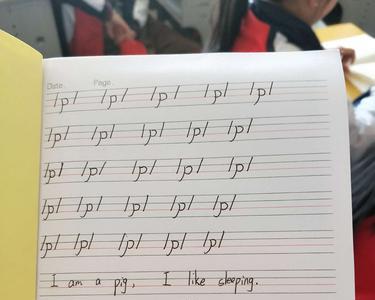 Date. Page.
/p/ /p/ /p/ /p/ /p/
/p/ /p/ /p/ /p/ /p/
/p/ /p/ /p/ /p/ /p/
/p/ /p/ /p/ /p/ /p/
/p/ /p/ /p/ /p/ /p/
I am a pig, I like sleeping.